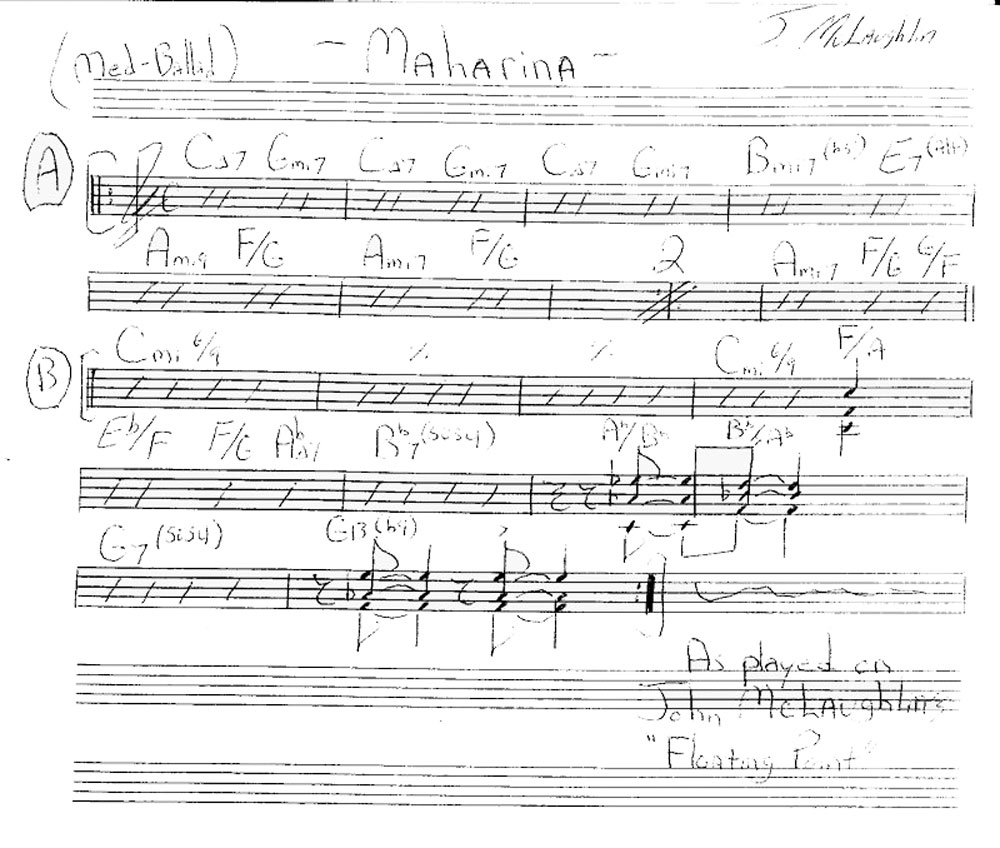 J. McLaughlin
(Med-Ballad) - Maharina -
A
CΔ7 Gmi7 CΔ7 Gmi7 CΔ7 Gmi7 Bmi7(b5) E7(Alt)
Ami9 F/G Ami7 F/G 2 Ami7 F/G G/F
B
Cmi 6/9 ٪ ٪ Cmi 6/9 F/A
Eb/F F/G AbΔ7 Bb7(sus4) Ab/Bb Bb/Ab
G7(sus4) G13(b9)
As played on
John McLaughlin's
"Floating Point"